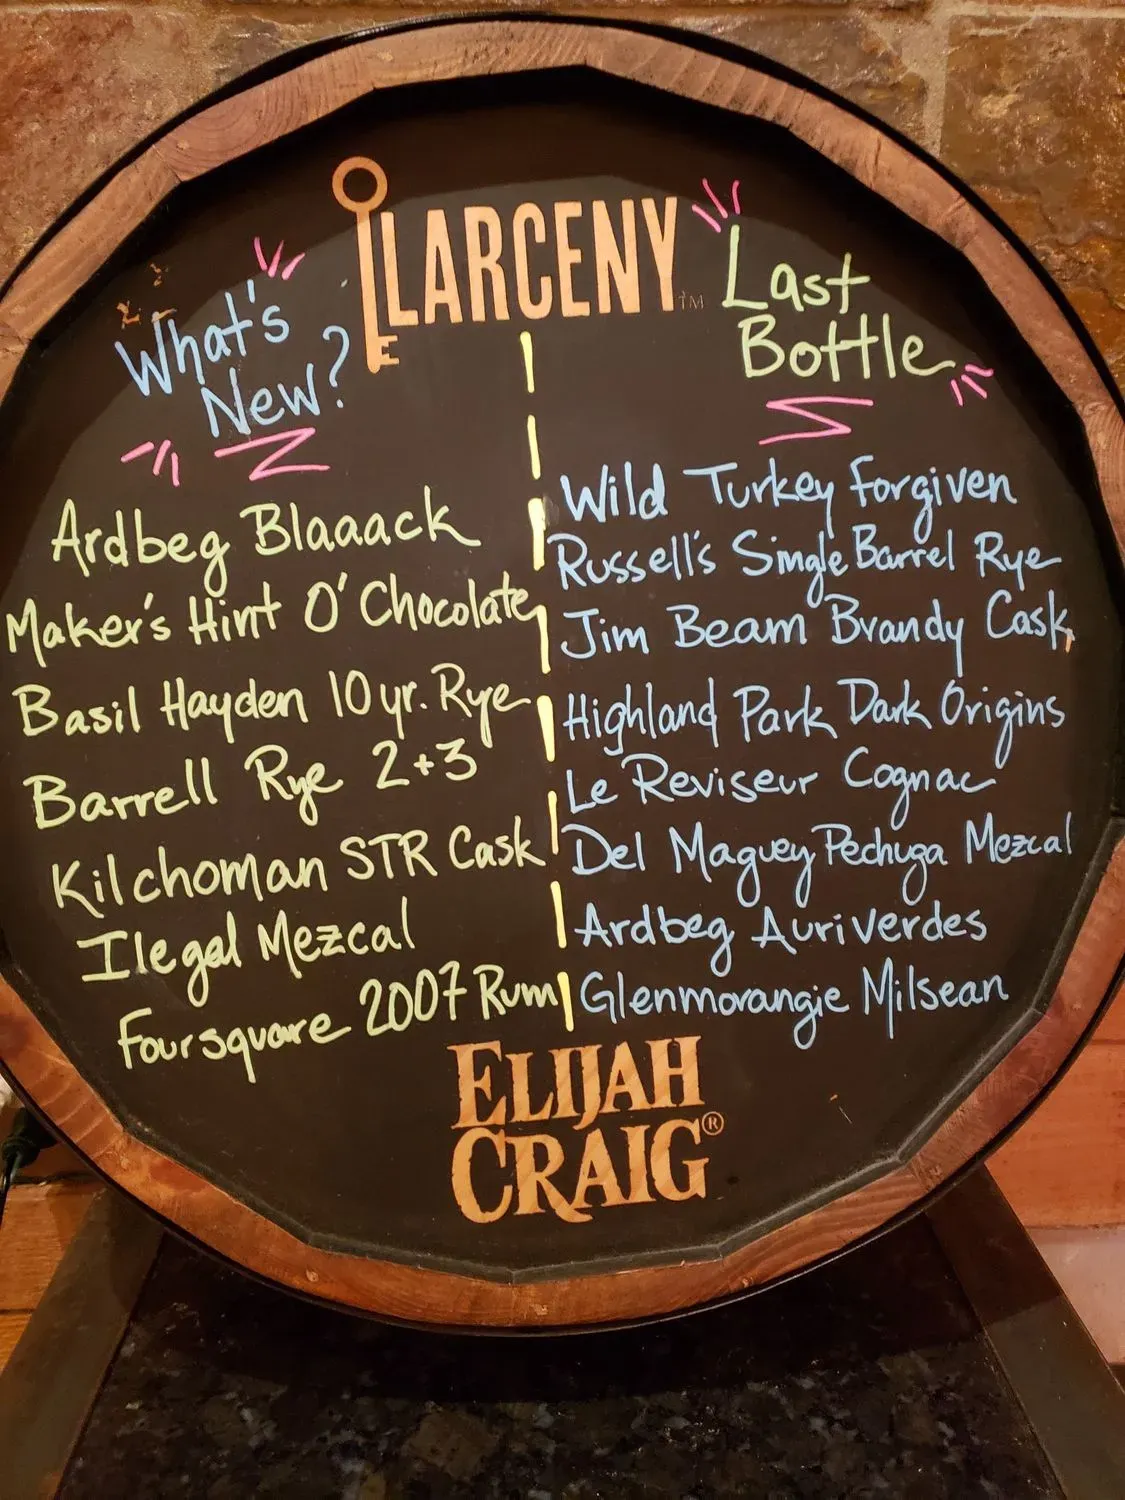 LARCENY™
What's
New?
Ardbeg Blaaack
Maker's Hint O' Chocolate
Basil Hayden 10yr. Rye
Barrell Rye 2+3
Kilchoman STR Cask
Ilegal Mezcal
Foursquare 2007 Rum
Last
Bottle
Wild Turkey Forgiven
Russell's Single Barrel Rye
Jim Beam Brandy Cask
Highland Park Dark Origins
Le Reviseur Cognac
Del Maguey Pechuga Mezcal
Ardbeg Auriverdes
Glenmorangie Milsean
ELIJAH
CRAIG®